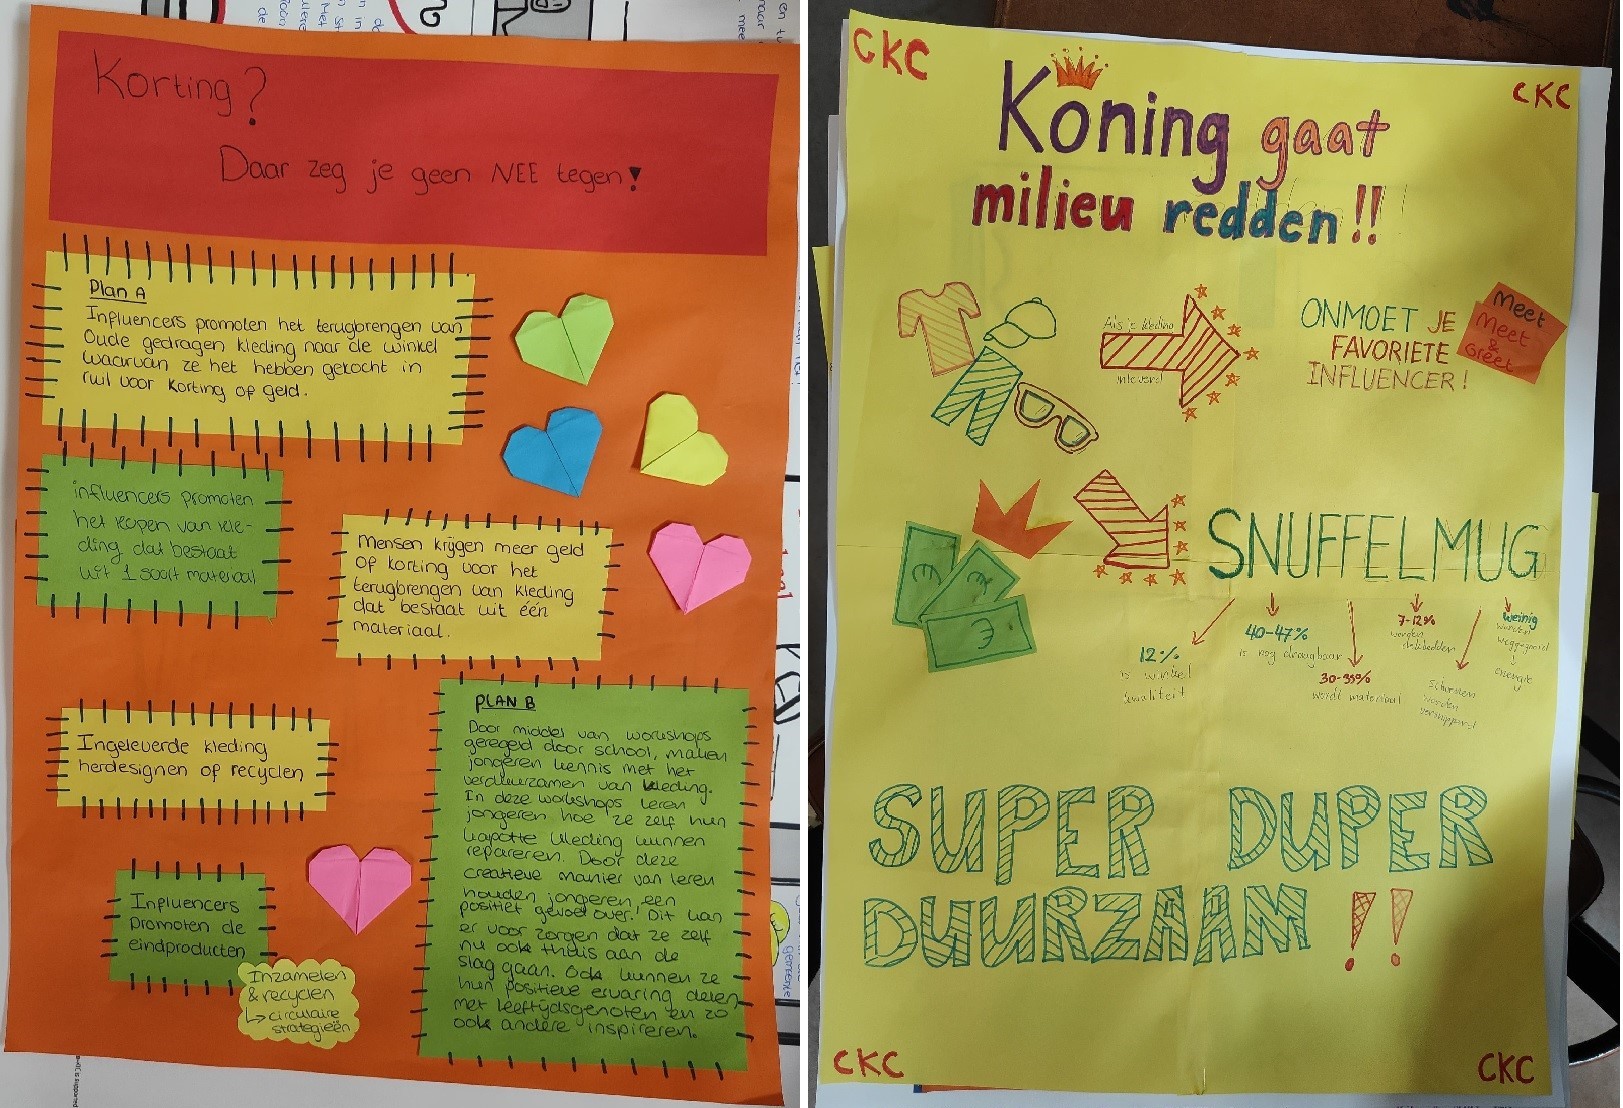 Korting?
Daar zeg je geen NEE tegen!
Plan A
Influencers promoten het terugbrengen van
Oude gedragen kleding naar de winkel
waarvan ze het hebben gekocht in
ruil voor korting of geld.
influencers promoten
het kopen van kle-
ding dat bestaat
uit 1 soort materiaal
Mensen krijgen meer geld
of korting voor het
terugbrengen van kleding
dat bestaat uit één
materiaal.
Ingeleverde kleding
herdesignen of recyclen
Influencers
promoten de
eindproducten
Inzamelen
& recyclen
↳ circulaire
strategieën
PLAN B
Door middel van workshops
geregeld door school, maken
jongeren kennis met het
verduurzamen van kleding.
In deze workshops leren
jongeren hoe ze zelf hun
kapotte kleding kunnen
repareren. Door deze
creatieve manier van leren
houden jongeren een
positief gevoel over! Dit kan
er voor zorgen dat ze zelf
nu ook thuis aan de
slag gaan. Ook kunnen ze
hun positieve ervaring delen
met leeftijdsgenoten en zo
ook andere inspireren.
CKC
CKC
Koning gaat
milieu redden!!
Als je kleding
inlevert
ONMOET JE
FAVORIETE
INFLUENCER!
Meet
Meet
&
Greet
SNUFFELMUG
12%
is winkel
kwaliteit
40-47%
is nog draagbaar
30-35%
wordt materiaal
7-12%
worden
weinig
worden
weggegooid
worden
SUPER DUPER
DUURZAAM!!
CKC
CKC